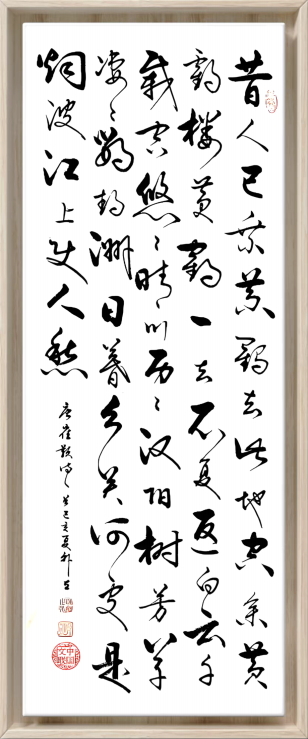 昔人已乘黄鹤去此地空余黄
鹤楼黄鹤一去不复返白云千
载空悠悠晴川历历汉阳树芳草
萋萋鹦鹉洲日暮乡关何处是
烟波江上使人愁
唐崔颢诗一首己亥夏